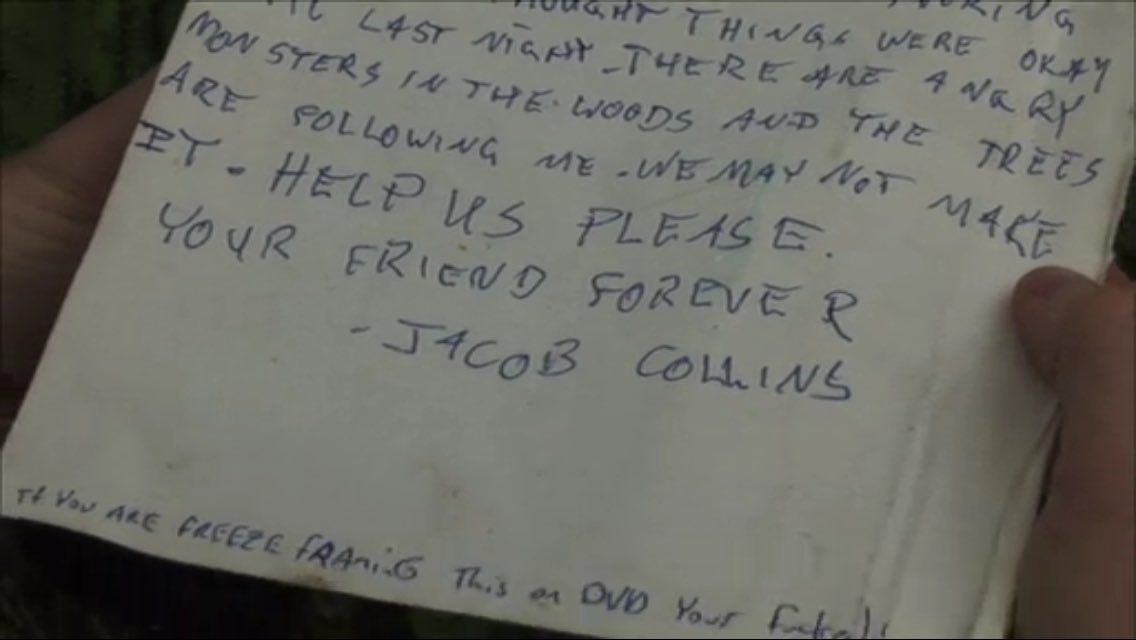 THOUGHT THINGS WERE OKAY
LAST NIGHT. THERE ARE ANGRY
MONSTERS IN THE WOODS AND THE TREES
ARE FOLLOWING ME. WE MAY NOT MAKE
IT. HELP US PLEASE.
YOUR FRIEND FOREVER
- JACOB COLLINS
If YOU ARE FREEZE FRAMING This on DVD Your